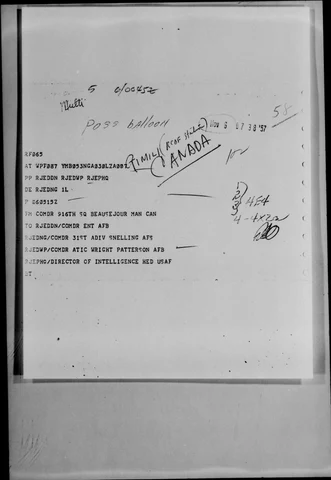 5 0/0045Z
Multi
58
Poss balloon
NOV 6 07 38 '57
CANADA
RF065
AT WPF087 YMB053NGA838LZA002
PP RJEDDN RJEDWP RJEPHQ
DE RJEDNG 1L
P 060515Z
FM COMDR 916TH SQ BEAUSEJOUR MAN CAN
TO RJEDDN/COMDR ENT AFB
RJEDNG/COMDR 31ST ADIV SNELLING AFS
RJEDWP/COMDR ATIC WRIGHT PATTERSON AFB
RJEPHQ/DIRECTOR OF INTELLIGENCE HED USAF
BT
4E4